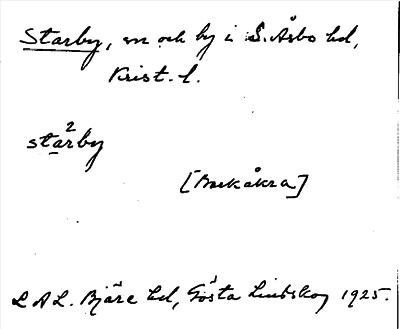 Starby, sn och by i S. Åsbo hd,
Krist. l.
2
starby
[Barkåkra]
LAL. Bjäre hd, Gösta Lindskog 1925.